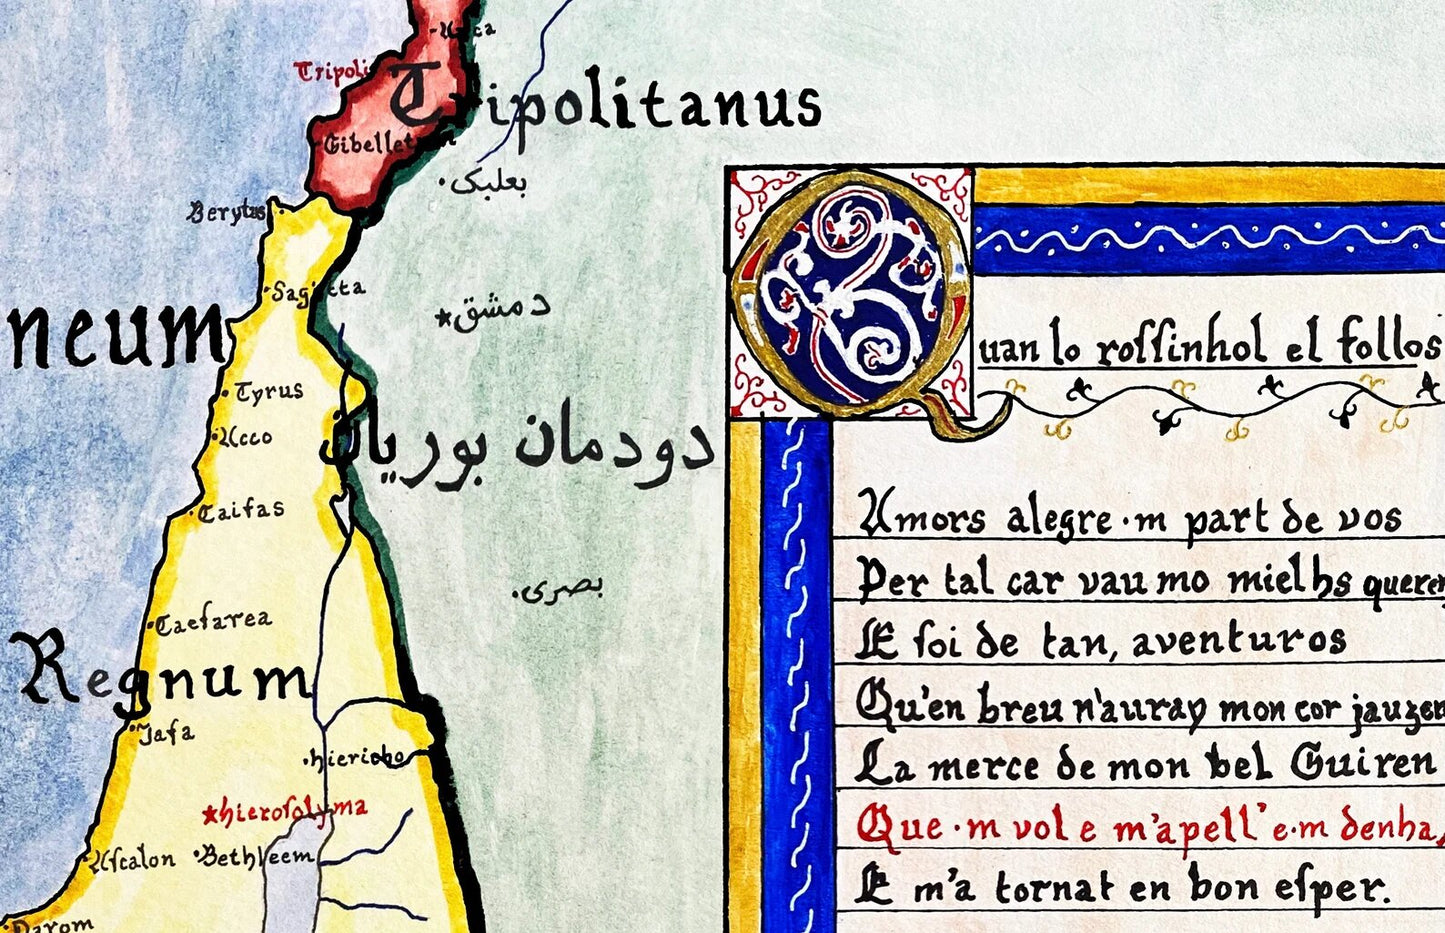 Tripoli
Tripolitanus
Gibellet
بعلبک
Berytus
Sagitta
دمشق
neum
Tyrus
Acco
دودمان بوریان
Caifas
بصری
Caesarea
Regnum
Jafa
hiericho
hierosolyma
Ascalon
Bethleem
Darom
Quan lo rossinhol el follos
Amors alegre·m part de vos
Per tal car vau mo mielhs queren
E soi de tan, aventuros
Qu'en breu n'auray mon cor jauzen
La merce de mon bel Guiren
Que·m vol e m'apell' e·m denha
E m'a tornat en bon esper.